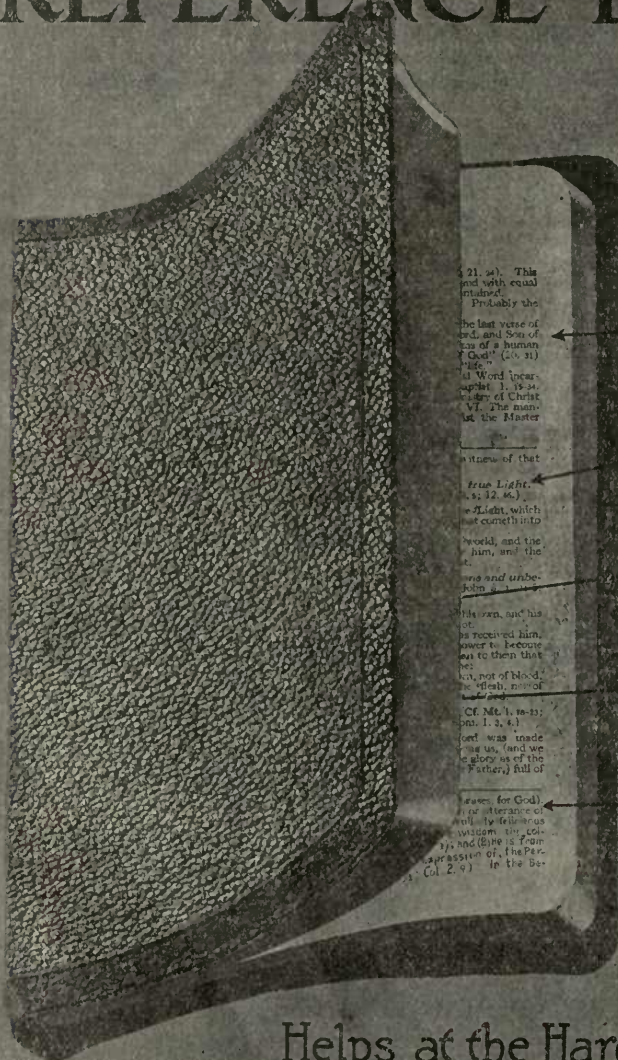 REFERENCE B
21. 24). This
and with equal
ntained.
Probably the
he last verse of
ord, and Son of
of a human
God" (20. 31)
"life."
Word incar-
aptist 1. 15-34.
of Christ
VI. The man-
the Master
itness of that
true Light.
12. 46.)
Light, which
cometh into
world, and the
him, and the
and unbe-
John
his own, and his
ot.
as received him,
power to become
to them that
not of blood,
flesh, nor of
Cf. Mt. 1. 18-23;
ord was made
us, (and we
glory as of the
Father,) full of
for God)
or utterance of
felicitous
wisdom
and (2) He is from
of, the Per-
Col. 2. 9) In the Be-
Helps at the Hard